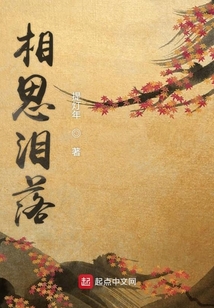 相思泪落
提灯年 ◎ 著
起点 起点中文网